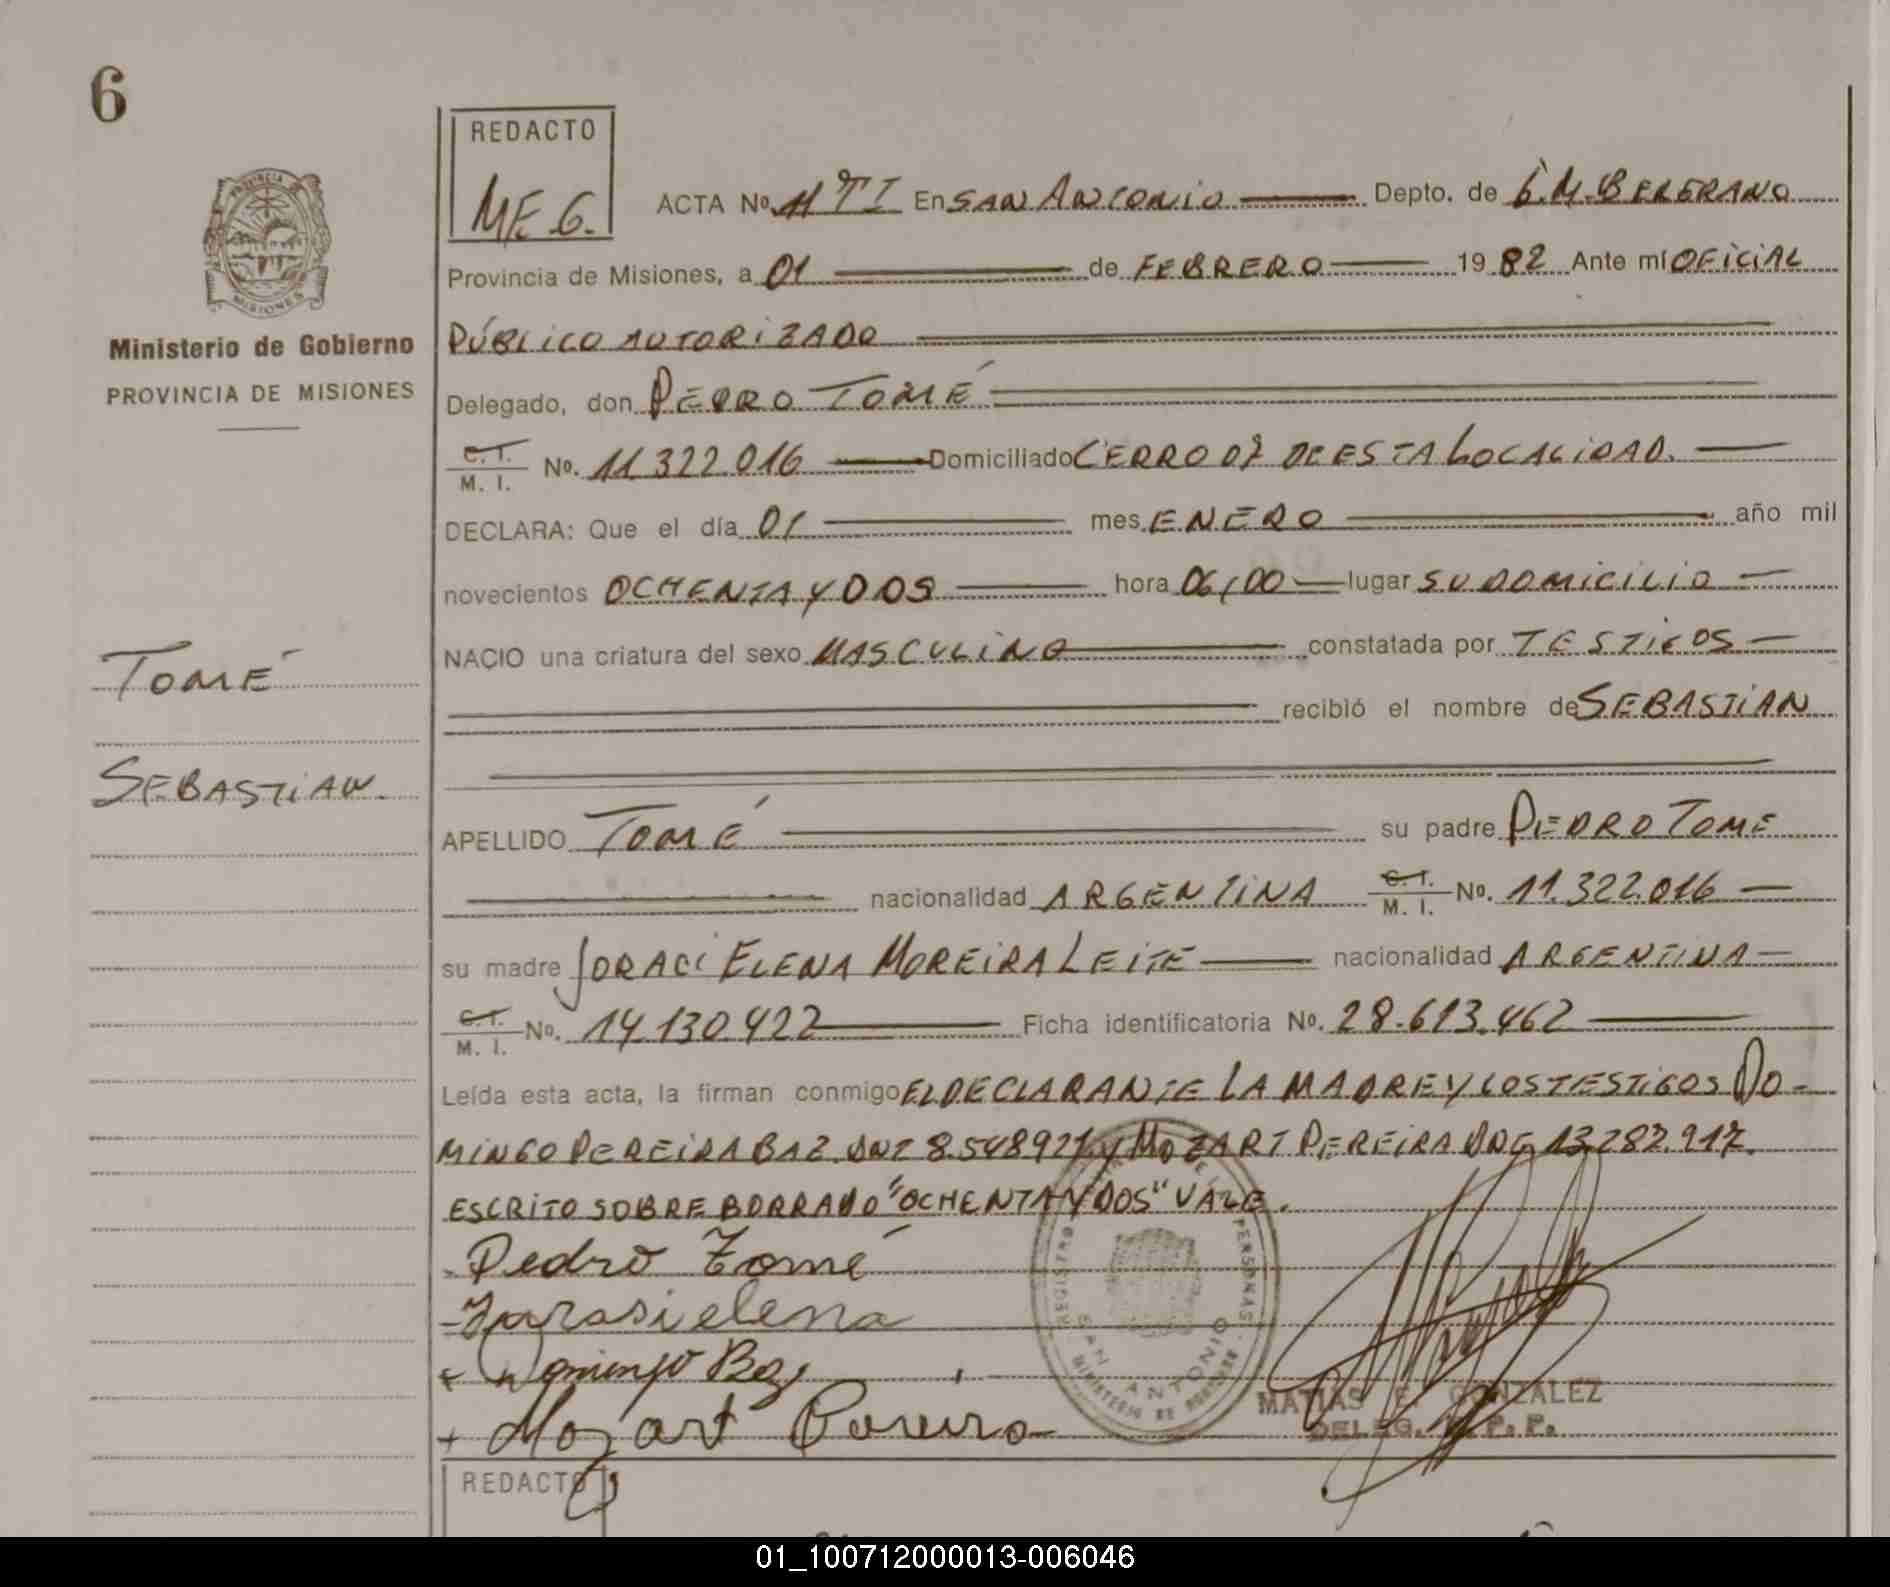 6
REDACTO
M.E.G.
ACTA No. 11 TI En SAN ANTONIO Depto. de G.M.BELGRANO
PROVINCIA
MISIONES
Provincia de Misiones, a 01 de FEBRERO 1982 Ante mí OFICIAL
PÚBLICO AUTORIZADO
Ministerio de Gobierno
PROVINCIA DE MISIONES
Delegado, don PEDRO TOMÉ
C.I. M. I. No. 11.322.016 Domiciliado CERRO 07 DE ESTA LOCALIDAD.
DECLARA: Que el día 01 mes ENERO año mil
novecientos OCHENTA Y DOS hora 06,00 lugar SU DOMICILIO
NACIO una criatura del sexo MASCULINO constatada por TESTIGOS
TOMÉ
recibió el nombre de SEBASTIAN
SEBASTIAN.
APELLIDO TOMÉ su padre PEDRO TOME
nacionalidad ARGENTINA C.I. M. I. No. 11.322.016
su madre JORACI ELENA MOREIRA LEITE nacionalidad ARGENTINA
C.I. M. I. No. 14.130.422 Ficha identificatoria No. 28.613.462
Leída esta acta, la firman conmigo EL DECLARANTE LA MADRE Y LOS TESTIGOS DO-
MINGO PEREIRA BAZ. DNI 8.548921 y MOZART PEREIRA DNI 13.282.917.
ESCRITO SOBRE BORRADO "OCHENTA Y DOS" VALE.
Pedro Tomé
Jurasielena
Domingo Baz
Mozart Pereira
PERSONAS
SAN ANTONIO
MINISTERIO DE GOBIERNO
MATIAS E. GONZALEZ
DELEG. R. P. P.
REDACTO
01_100712000013-006046